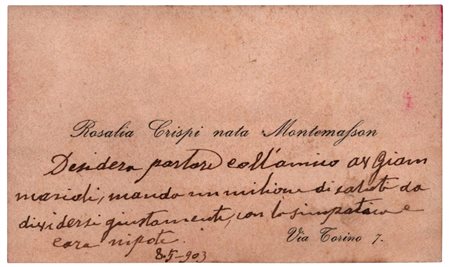 Rosalia Crispi nata Montemasson
Desidera parlare coll'amico
marioli, manda un milione di saluti da
dividersi giustamente, con lo simpatica e
cara nipote.
Via Torino 7.
8-5-903